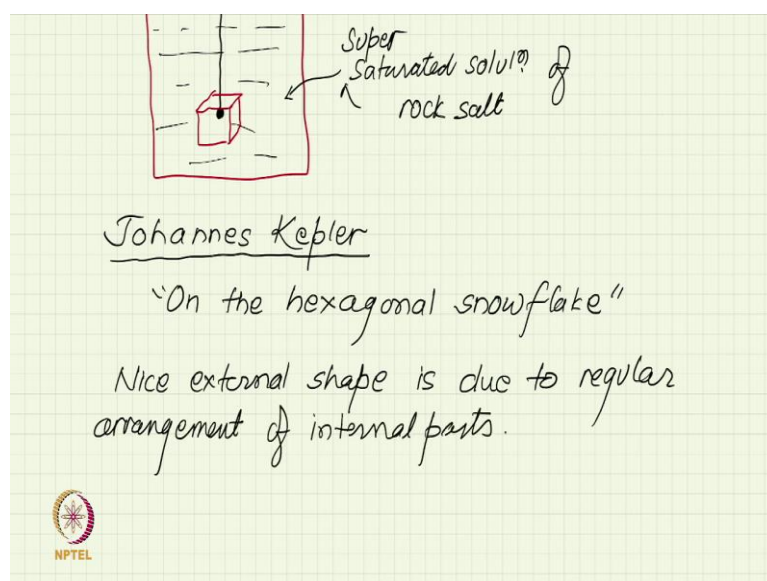 Super
Saturated solul? of
rock salt
Johannes Kepler
"On the hexagonal snowflake"
Nice external shape is due to regular
arrangement of internal parts.
NPTEL